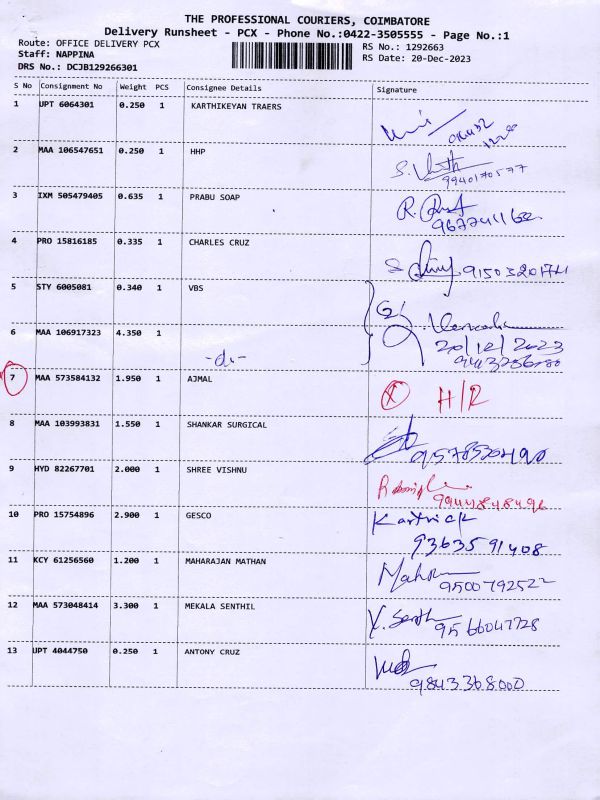 THE PROFESSIONAL COURIERS, COIMBATORE
Delivery Runsheet - PCX - Phone No.:0422-3505555 - Page No.:1
Route: OFFICE DELIVERY PCX RS No.: 1292663
Staff: NAPPINA RS Date: 20-Dec-2023
DRS No.: DCJB129266301
S No Consignment No Weight PCS Consignee Details Signature
1 UPT 6064301 0.250 1 KARTHIKEYAN TRAERS
2 MAA 106547651 0.250 1 HHP
9940170577
3 IXM 505479405 0.635 1 PRABU SOAP
4 PRO 15816185 0.335 1 CHARLES CRUZ
5 STY 6005081 0.340 1 VBS
6 MAA 106917323 4.350 1
-do-
20/12/2023
7 MAA 573584132 1.950 1 AJMAL
X H/R
8 MAA 103993831 1.550 1 SHANKAR SURGICAL
9 HYD 82267701 2.000 1 SHREE VISHNU
9444848496
10 PRO 15754896 2.900 1 GESCO
Kartrick
9363591408
11 KCY 61256560 1.200 1 MAHARAJAN MATHAN
9500792522
12 MAA 573048414 3.300 1 MEKALA SENTHIL
9566047728
13 UPT 4044750 0.250 1 ANTONY CRUZ
9843368000